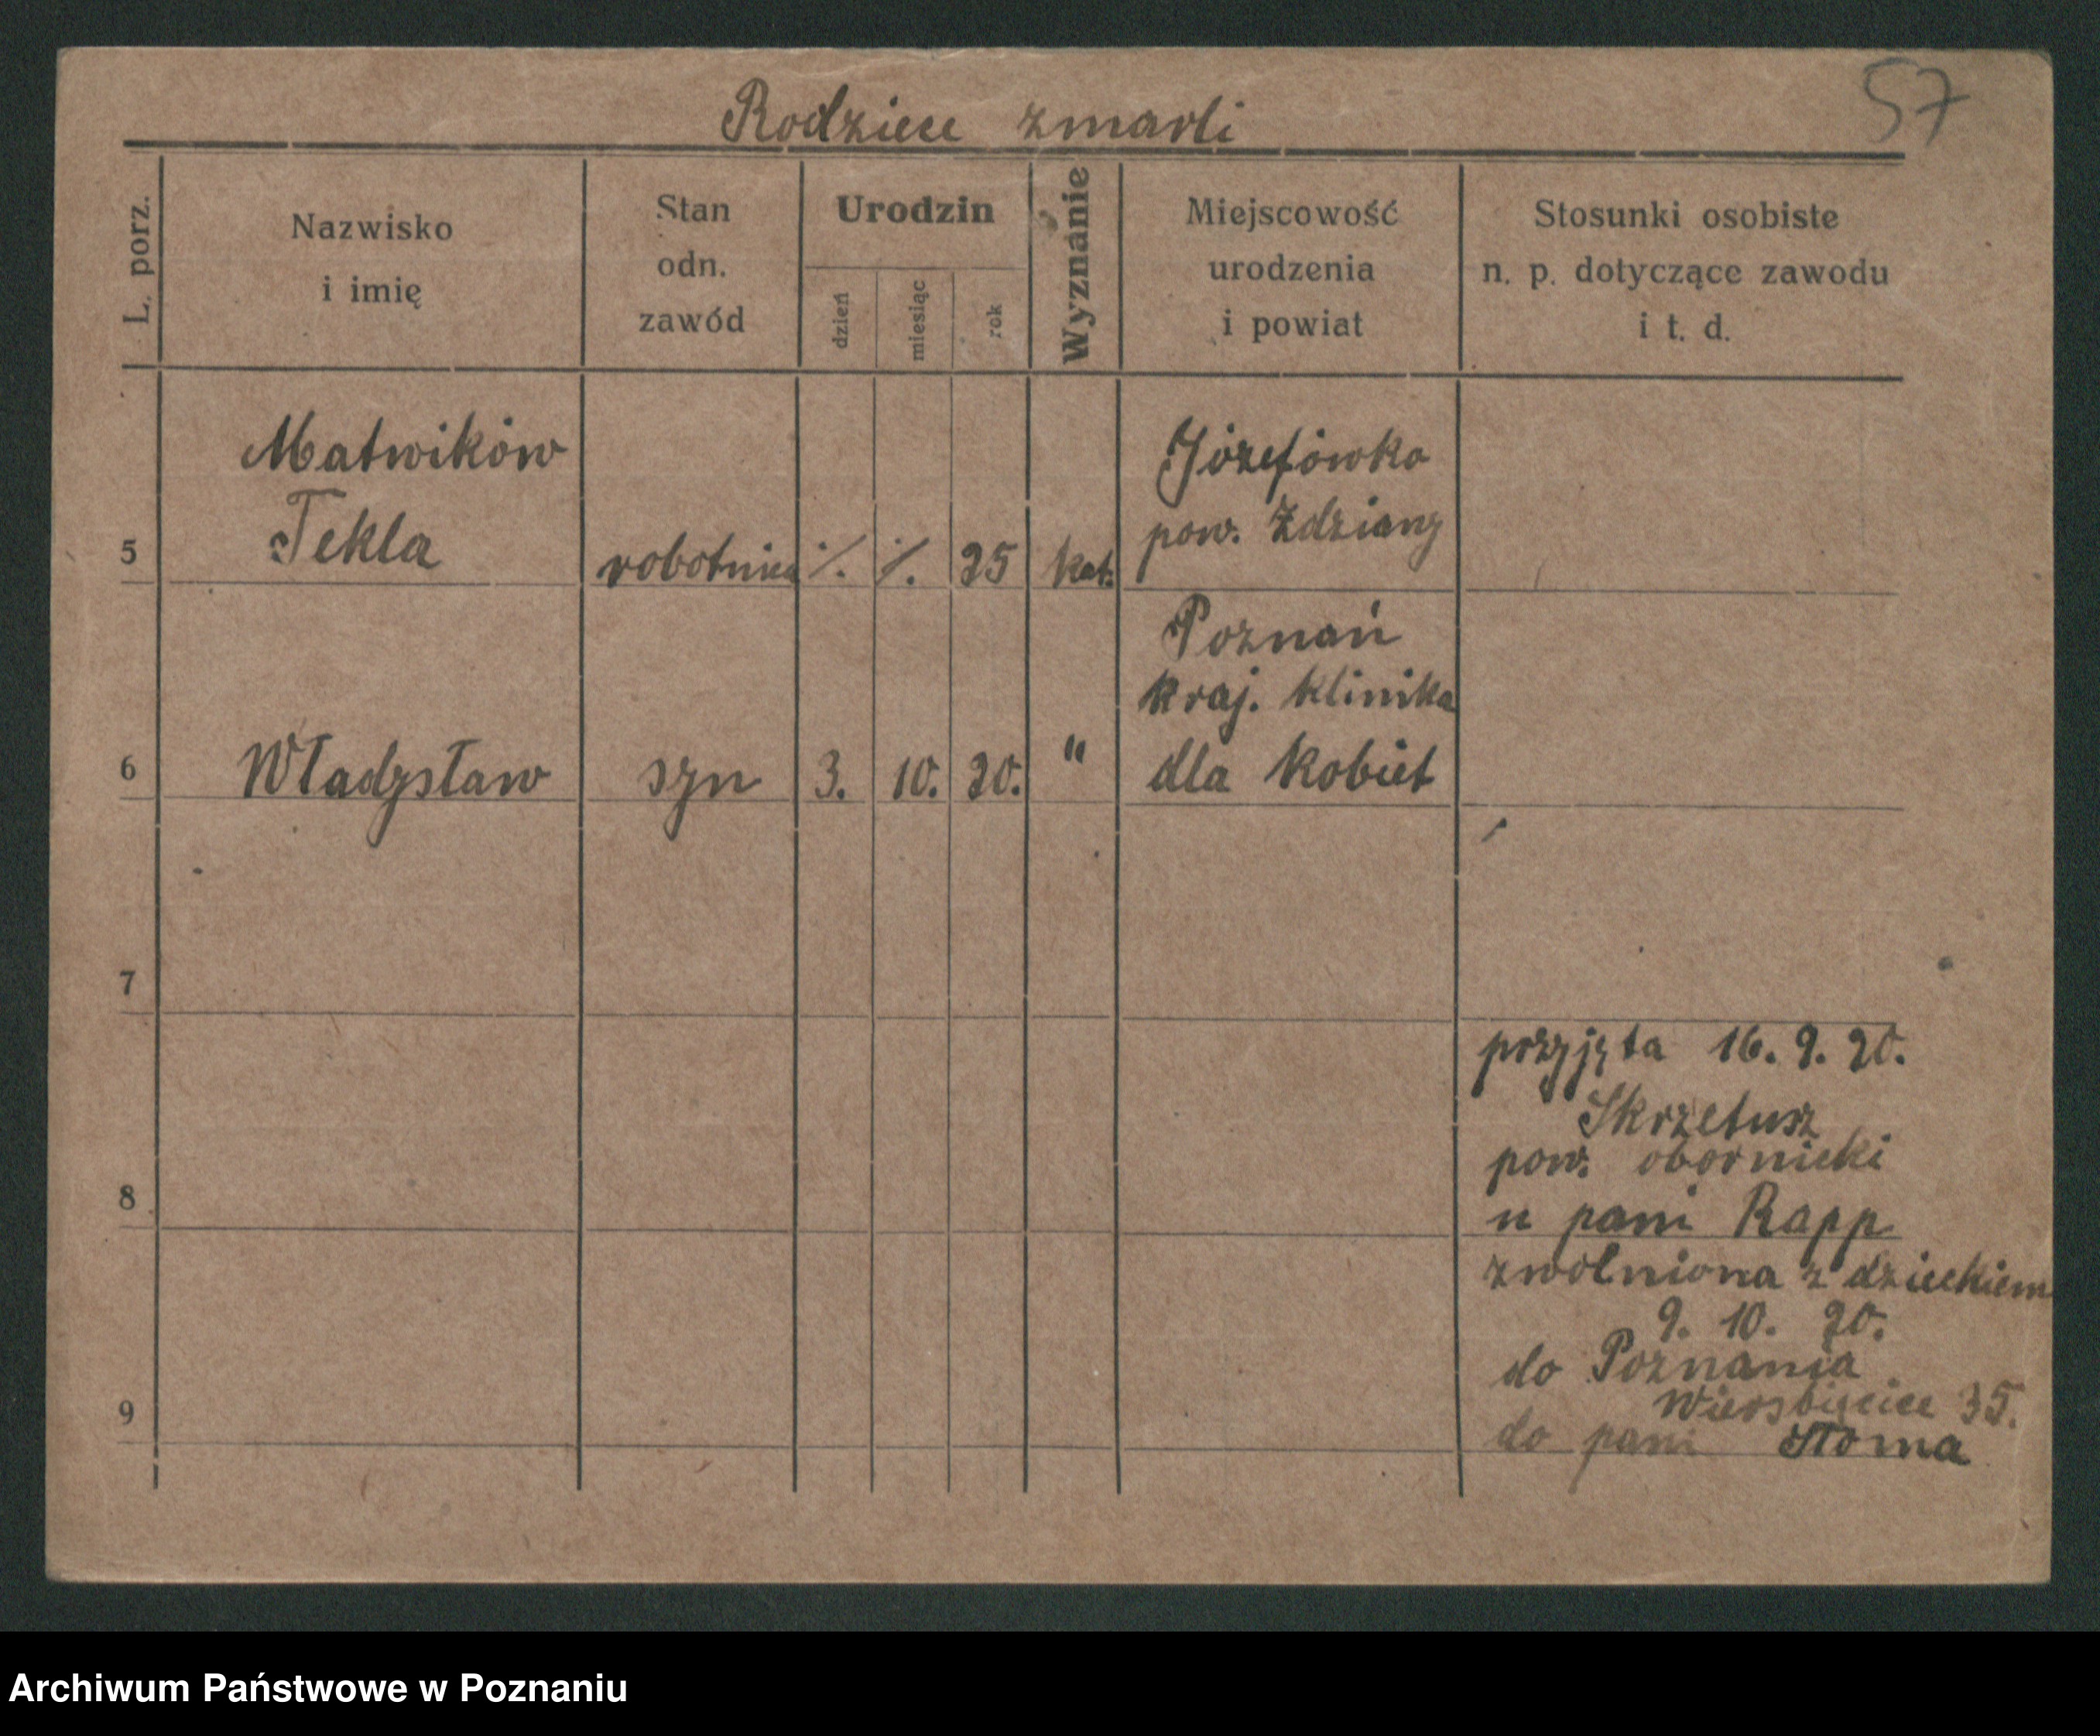 57
Rodzice zmarli
L. porz.
Nazwisko
i imię
Stan
odn.
zawód
Urodzin
dzień
miesiąc
rok
Wyznanie
Miejscowość
urodzenia
i powiat
Stosunki osobiste
n. p. dotyczące zawodu
i t. d.
5
Matwików
Tekla
robotnica
·/.
·/.
25
kat.
Józefówka
pow. Zdziany
6
Władysław
syn
3.
10.
20.
"
Poznań
kraj. klinika
dla kobiet
7
8
9
przyjęta 16. 9. 20.
Skrzetusz
pow. obornicki
u pani Rapp
zwolniona z dzieckiem
9. 10. 20.
do Poznania
Wierzbięcice 35.
do pani Stoma
Archiwum Państwowe w Poznaniu